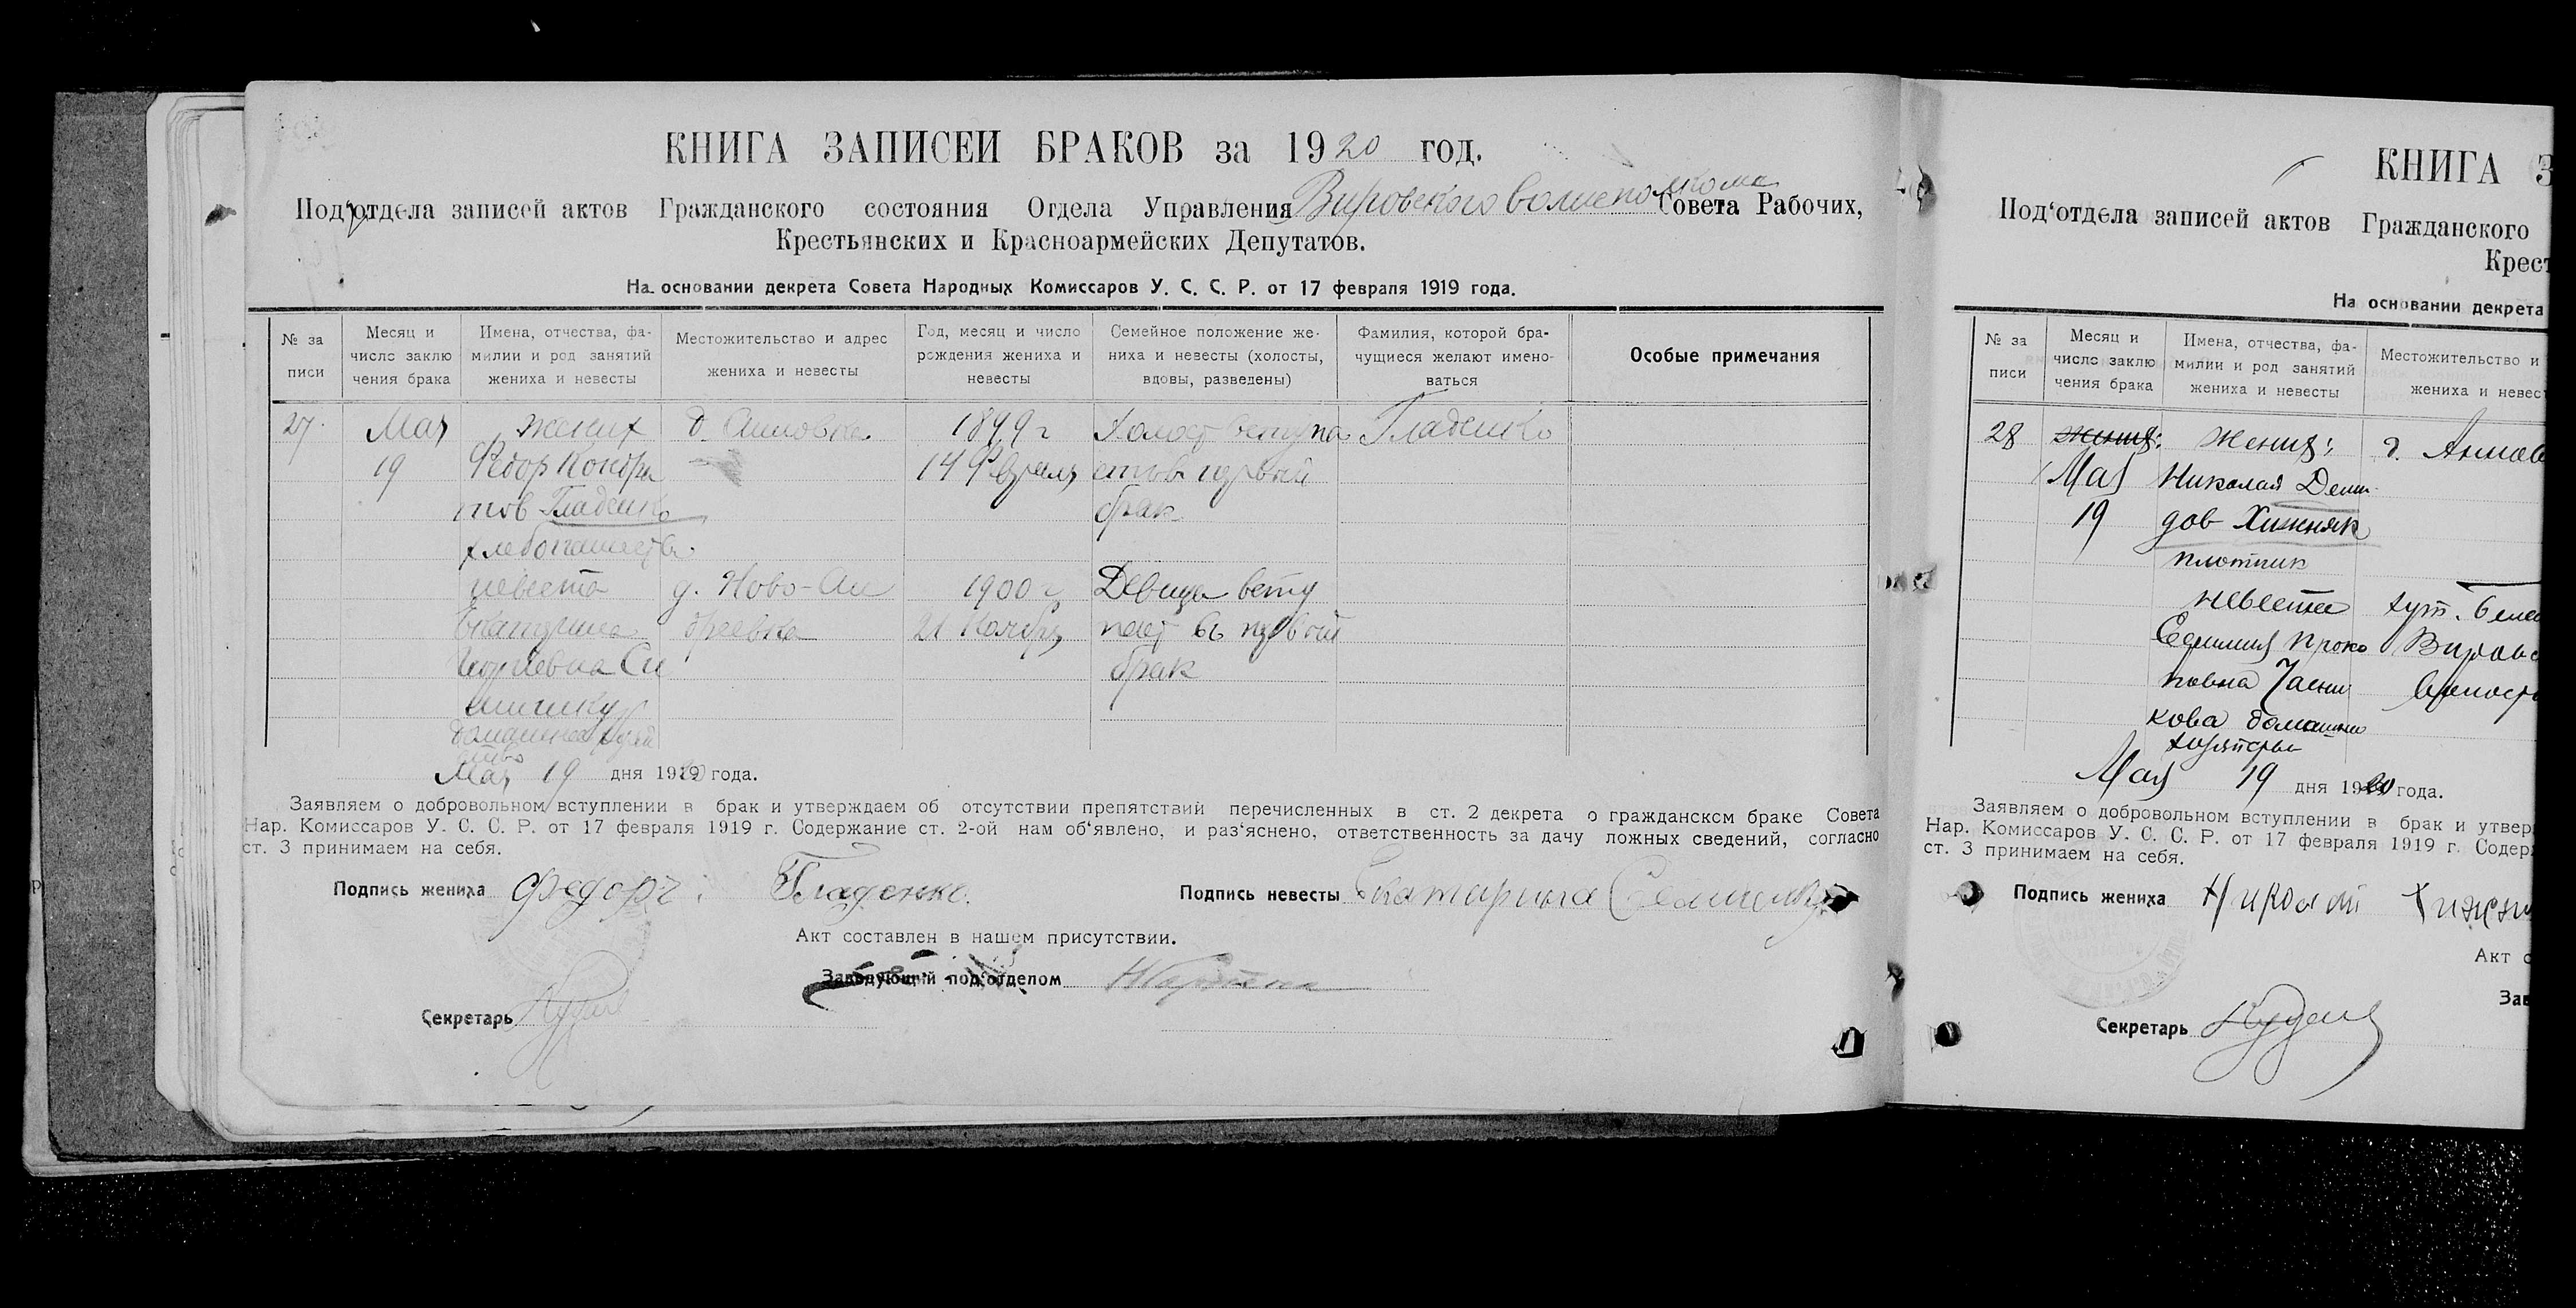 КНИГА ЗАПИСЕЙ БРАКОВ за 1920 год.
Под'отдела записей актов Гражданского состояния Отдела Управления Вировского волисполкома Совета Рабочих,
Крестьянских и Красноармейских Депутатов.
На основании декрета Совета Народных Комиссаров У. С. С. Р. от 17 февраля 1919 года.
№ за писи
Месяц и число заклю чения брака
Имена, отчества, фа- милии и род занятий жениха и невесты
Местожительство и адрес жениха и невесты
Год, месяц и число рождения жениха и невесты
Семейное положение же- ниха и невесты (холосты, вдовы, разведены)
Фамилия, которой бра- чущиеся желают имено- ваться
Особые примечания
27. Мая жених 1899 г Холост вступа Гладенко
19 Федор Кондра 14 Февраля первый
тов Гладенко брак
хлебопашество
невеста д. Ново-Ан 1900 г Девица всту
Екатерина дреевка 21 Ноября пает въ первый
брак
Мая 19 дня 1920 года.
Заявляем о добровольном вступлении в брак и утверждаем об отсутствии препятствий перечисленных в ст. 2 декрета о гражданском браке Совета
Нар. Комиссаров У. С. С. Р. от 17 февраля 1919 г. Содержание ст. 2-ой нам об'явлено, и раз'яснено, ответственность за дачу ложных сведений, согласно
ст. 3 принимаем на себя.
Подпись жениха Федоръ Гладенко. Подпись невесты Екатирина
Акт составлен в нашем присутствии.
Заведующий под'отделом
Секретарь
КНИГА З
Под'отдела записей актов Гражданского
Крест
На основании декрета
№ за писи
Месяц и число заклю чения брака
Имена, отчества, фа- милии и род занятий жениха и невесты
Местожительство и жениха и невес
28 жених: жених:
Мая Николай Деми
19 дов Хижняк
плотник
невеста хут.
Проко
повна
кова домашни
Мая 19 дня 1920 года.
Заявляем о добровольном вступлении в брак и утвер
Нар. Комиссаров У. С. С. Р. от 17 февраля 1919 г. Содер
ст. 3 принимаем на себя.
Подпись жениха Николай Хижн
Акт с
Зав
Секретарь